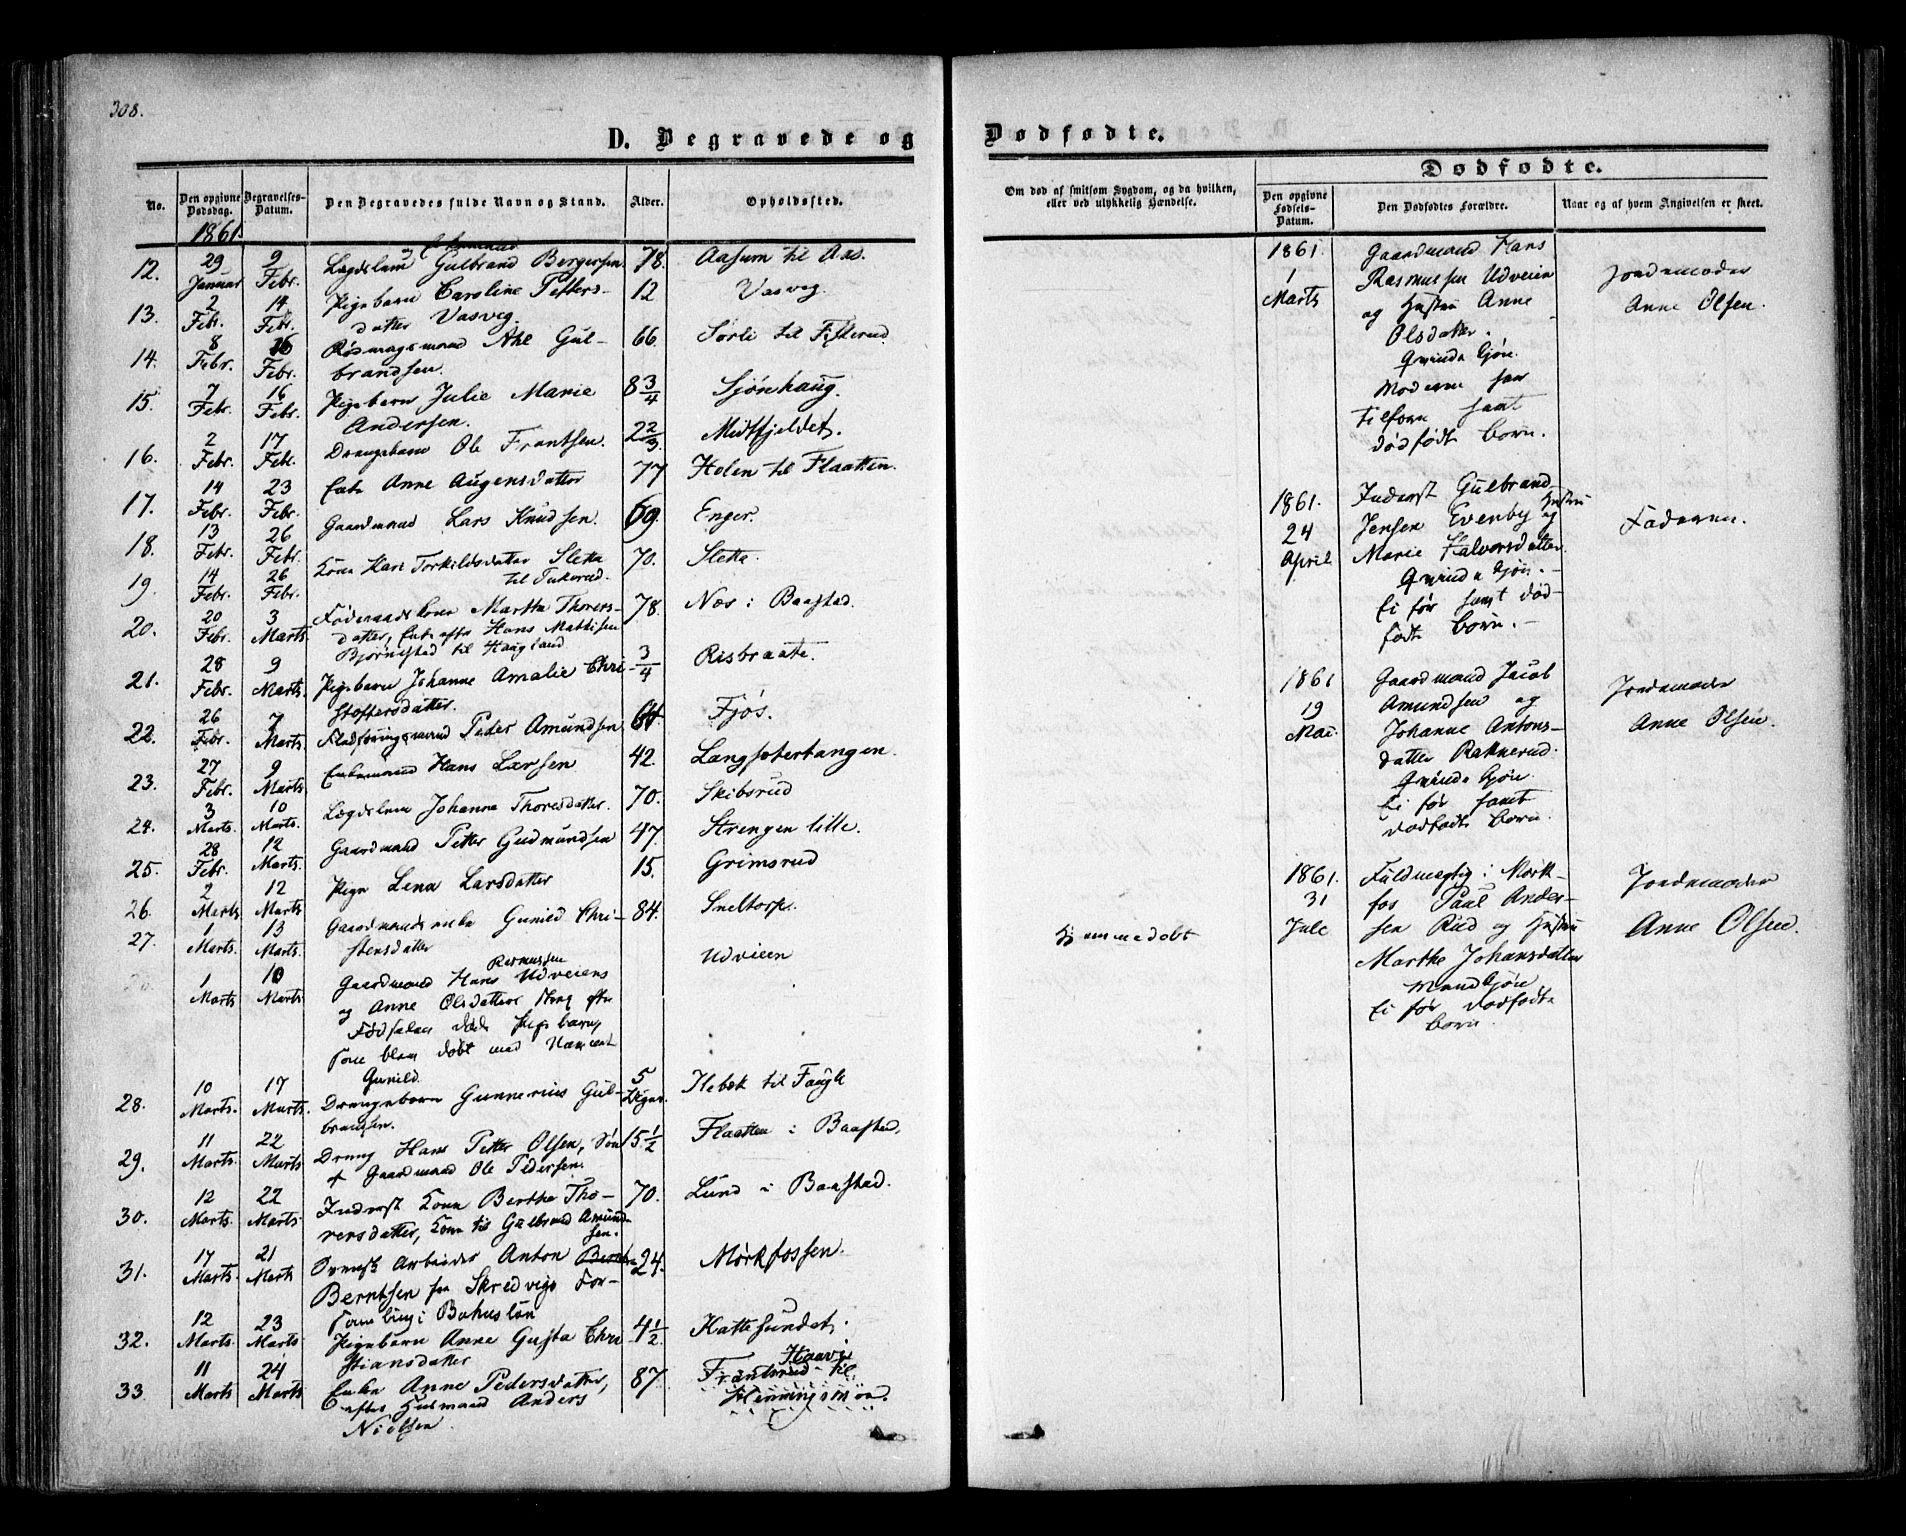 308.
D. Begravede og
No.
Den opgivne Dødsdag.
Begravelses-Datum.
Den Begravedes fulde Navn og Stand.
Alder.
Opholdssted.
1861.
12. 29 Januar 9 Febr. Lægdslem Gulbrand Bergersen 78. Aasum til Aas.
13. 2 Febr. 14 Febr. Pigebarn Caroline Petters- 12 Vasvig.
datter Vasvig.
14. 8 Febr. 16 Febr. Gul- 66. Sørli til Fisterud
brandsen.
15. 7 Febr. 16 Febr. Pigebarn Julie Marie 8 3/4 Sjønhaug.
Andersen.
16. 2 Febr. 17 Febr. Drengebarn Ole Frantsen. 2 2/3. Midtfjeldet.
17. 14 Febr. 23 Febr. Enke Anne Augensdatter 77 Holen til Flaatten.
18. 13 Febr. 26 Febr. Gaardmand Lars Knudsen. 69. Enger.
19. 14 Febr. 26 Febr. Kone Kari Torkildsdatter Sletta 70. Sletta.
til Tukerud.
20. 20 Febr. 3 Marts. Føderaadskone Martha Thorers- 78. Næs i Baastad.
datter, Enke efter Hans Mathisen
Bjørnestad til Haugland
21. 28 Febr. 9 Marts. Pigebarn Johanne Amalie Chri- 3/4 Risbraate.
stoffersdatter.
22. 26 Febr. 7 Marts. Peder Amundsen 64. Fjøs.
23. 27 Febr. 9 Marts. Enkemand Hans Larsen 42. Langsætertangen.
24. 3 Marts. 10 Marts. Lægdslem Johanne Thoresdatter. 70. Skibsrud
25. 28 Febr. 12 Marts. Gaardmand Petter Gudmundsen 47. Strengen lille.
26. 2 Marts. 12 Marts. Pige Lena Larsdatter 15. Grimsrud
27. 1 Marts. 13 Marts. Gaardmandsenke Gunild Chri- 84. Sneltorp.
stensdatter
1 Marts. 10 Marts. Gaardmand Hans Rasmussen Udveiens Udveien
og Anne Olsdatters strax efter
Fødselen døde Pigebarn,
som blev døbt med Navnet
Gunild.
28. 10 Marts. 17 Marts. Drengebarn Gunnerius Gul- 5 Dage. Ilebek til Faugle
brandsen.
29. 11 Marts. 22 Marts Dreng Hans Petter Olsen, Søn 15 1/2 Flaatten i Baastad.
af Gaardmand Ole Pedersen.
30. 12 Marts. 22 Marts. Inderst Kone Berthe Tho- 70. Lund i Baastad.
rersdatter, Kone til Gulbrand Amund-
sen.
31. 17 Marts. 21 Marts Svensk Arbeider Anton 24. Mørkfossen.
Berntsen fra Skredvigs For-
samling i Bohuslän
32. 12 Marts. 23 Marts Pigebarn Anne Gusta Chri 4 1/2 Kattesundet.
stiansdatter
33 11 Marts. 24 Marts. Enke Anne Pedersdatter, 87. Frantsrud til
efter Husmand Anders Henningsmøen.
Nielsen
Dødfødte.
Om død af smitsom Sygdom, og da hvilken, eller ved ulykkelig Hændelse.
Dødfødte.
Den opgivne Fødsels-Datum.
Den Dødfødtes Forældre.
Naar og af hvem Angivelsen er skeet.
1861. 1 Marts Gaardmand Hans
Rasmussen Udveien Jordemoder
og Hustru Anne Anne Olsen.
Olsdatter.
Qvindekjøn.
Moderen har
tilforn havt
dødfødt Børn.
1861. 24 April Inderst Gulbrand
Jensen Evenby og Hustru Faderen.
Marie Halvorsdatter
Qvindekjøn.
Ei før havt død-
fødte Børn.
1861 19 Mai Gaardmand Jacob Jordemoder
Amundsen og Anne Olsen.
Johanne Antons-
datter Raknerud.
Qvindekjøn
Ei før havt
dødfødte Børn.
1861. 31 Juli Fuldmægtig i Mørk- Jordemoder
fos Paul Ander-
sen Rud og Hustru Anne Olsen.
Hjemmedøbt
Marthe Johansdatter
Mandkjøn
Ei før dødfødte
Børn.